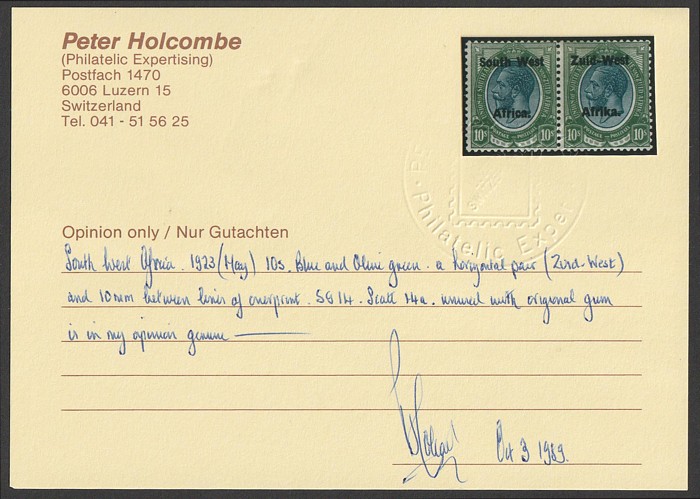 Peter Holcombe
(Philatelic Expertising)
Postfach 1470
6006 Luzern 15
Switzerland
Tel. 041 - 51 56 25
South West Zuid-West
Africa. Afrika.
10s 10s 10s 10s
Philatelic Exper
Opinion only / Nur Gutachten
South West Africa. 1923 (May) 10s. Blue and Olive green. a horizontal pair (Zuid-West)
and 10mm between lines of overprint. SG 14. Scott 14a. unused with original gum
is in my opinion genuine
Oct 3 1989.